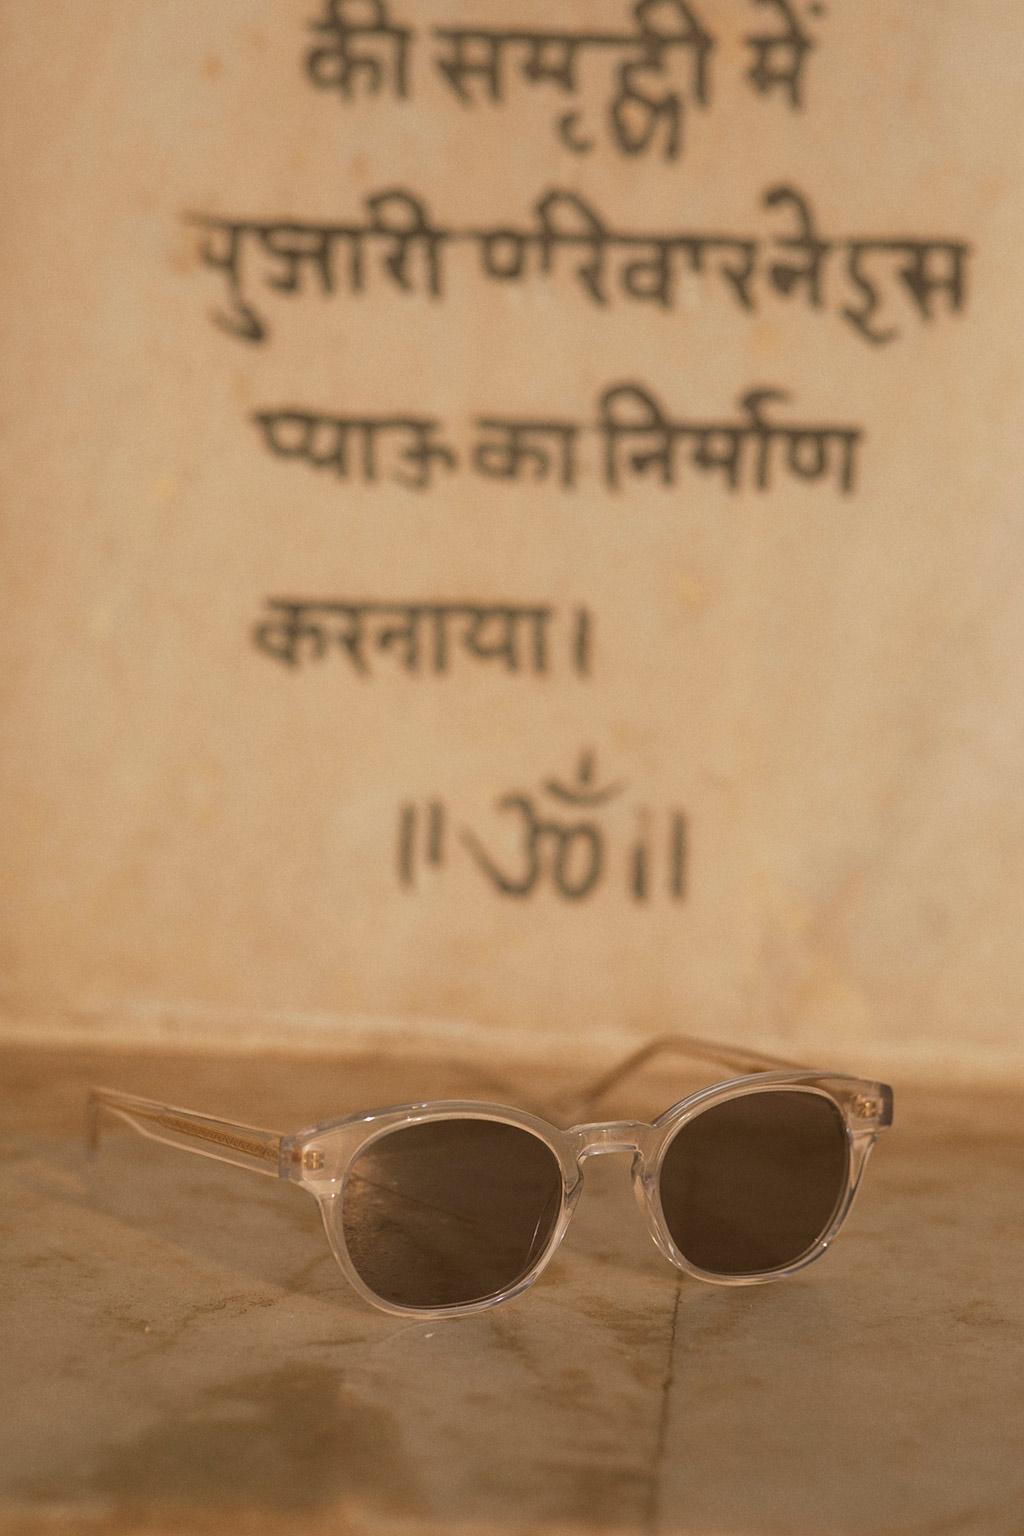 की समृद्धी में
पुजारी परिवार ने इस
प्याऊ का निर्माण
करनाया।
॥ ॐ ॥